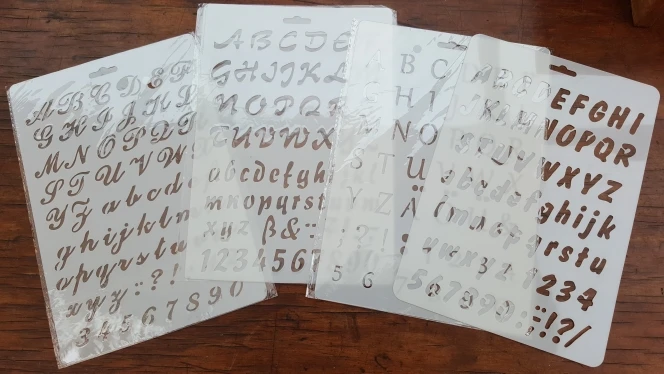 A B C D E F
G H I J K L
M N O P
S T U V W
Y Z a b c d
g h i j k l m
o p q r s t u
x y z : ? !
3 4 5 6 7 8 9 0
A B C D E
G H I J K L
N O P Q R
T U V W X
a b c d e f g h
m n o p q r s t u
x y z ß & :
1 2 3 4 5 6
B C
H I
N O
S T U
Y Z Ä
5 6
A B C D E F G H I
J K L M N O P Q R
S T U V W X Y Z
a b c d e f g h i j k
l m n o p q r s t u
v w x y z 1 2 3 4
5 6 7 8 9 0 : ; ! ? /